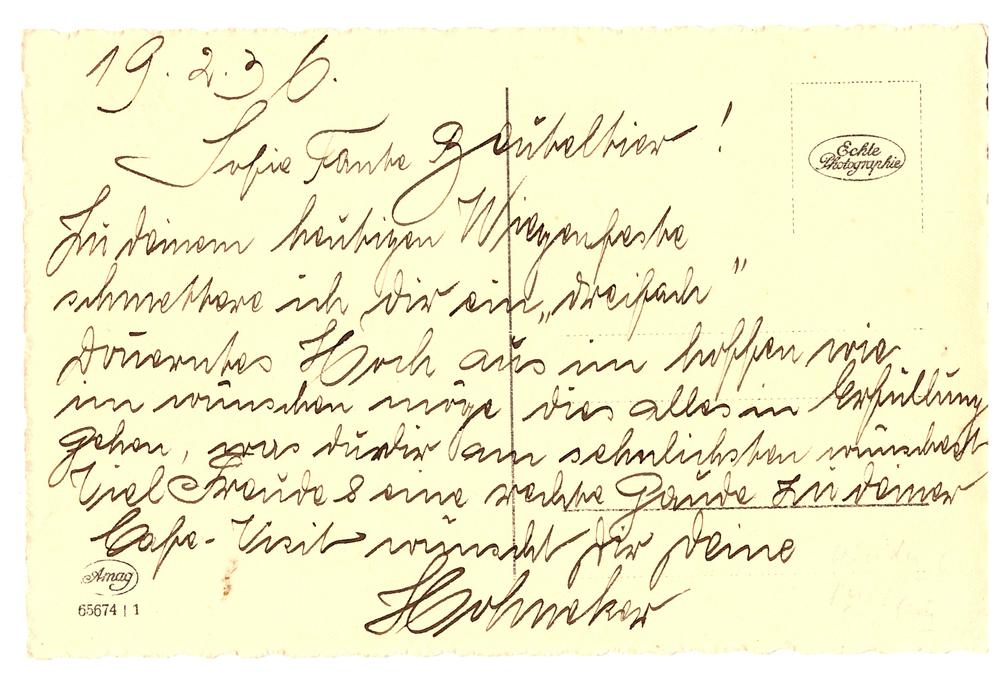 19.2.36.
Sofie Tante Beuteltier!
Echte
Photographie
Zu deinem heutigen Wiegenfeste
schmettere ich dir ein „dreifach"
Dauerntes Hoch aus im hoffen wie
im wünschen möge dies alles in Erfüllung
gehen, was du dir am sehnlichsten wünschest
Viel Freude & eine rechte Gaude zu deiner
Cafe-Visit wünscht Dir Deine
Amag
65674 | 1